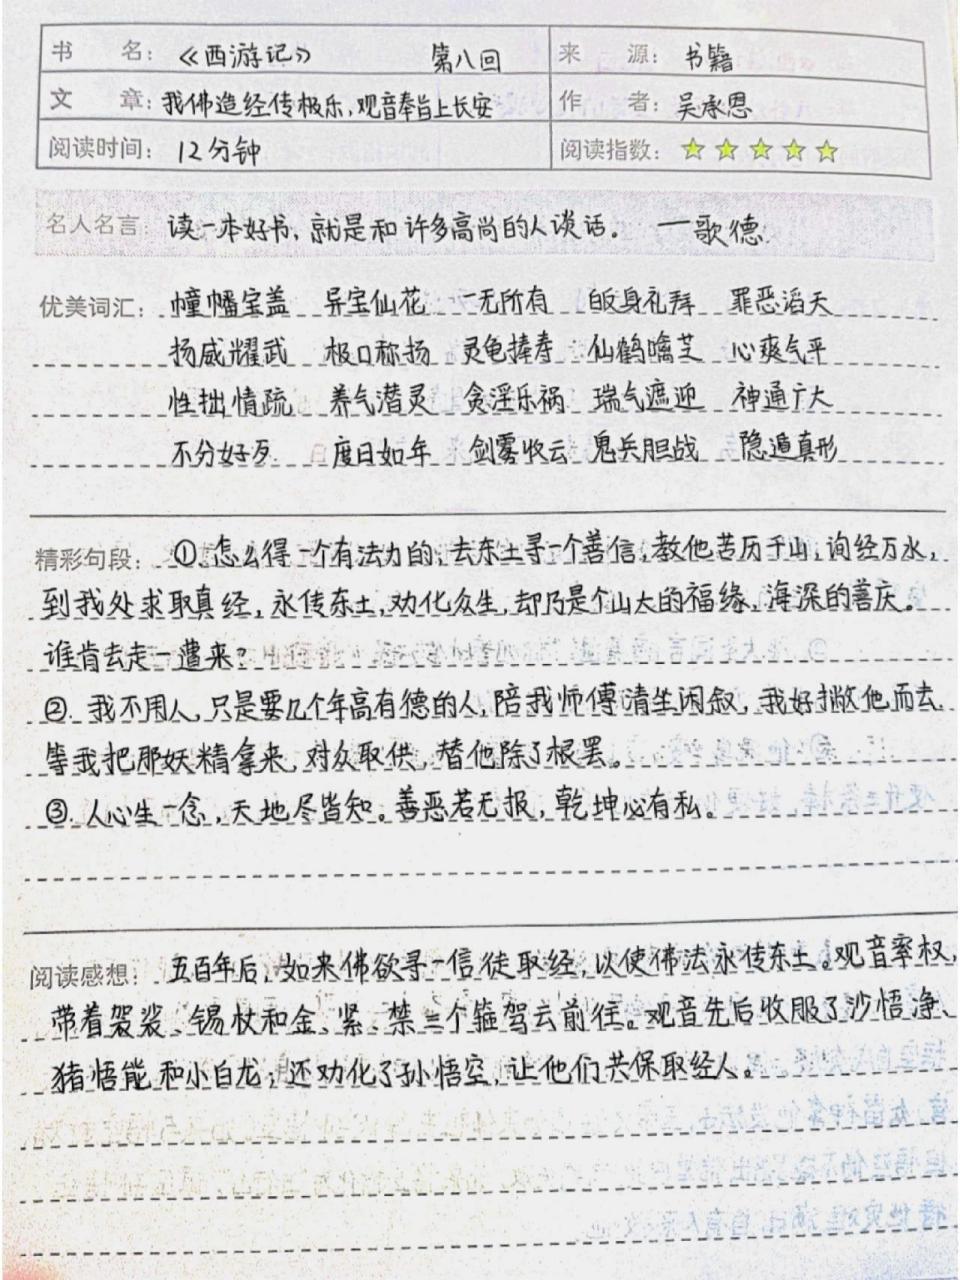 书 名：《西游记》 第八回 来 源：书籍
文 章：我佛造经传极乐,观音奉旨上长安 作 者：吴承恩
阅读时间：12分钟 阅读指数：
名人名言：读一本好书，就是和许多高尚的人谈话。 ——歌德
优美词汇： 幢幡宝盖 异宝仙花 一无所有 皈身礼拜 罪恶滔天
扬威耀武 极口称扬 灵龟捧寿 仙鹤噙芝 心爽气平
性拙情疏 养气潜灵 贪淫乐祸 瑞气遮迎 神通广大
不分好歹 度日如年 剑雾收云 鬼兵胆战 隐遁真形
精彩句段： ①.怎么得一个有法力的,去东土寻一个善信,教他苦历千山,询经万水,
到我处求取真经,永传东土,劝化众生,却乃是个山大的福缘,海深的善庆。
谁肯去走一遭来?
②.我不用人,只是要几个年高有德的人,陪我师傅清坐闲叙,我好撇他而去
等我把那妖精拿来,对众取供,替他除了根罢。
③.人心生一念,天地尽皆知。善恶若无报,乾坤必有私。
阅读感想： 五百年后,如来佛欲寻一信徒取经,以使佛法永传东土。观音率权,
带着袈裟、锡杖和金、紧、禁三个箍驾云前往。观音先后收服了沙悟净、
猪悟能和小白龙,还劝化了孙悟空,让他们共保取经人。